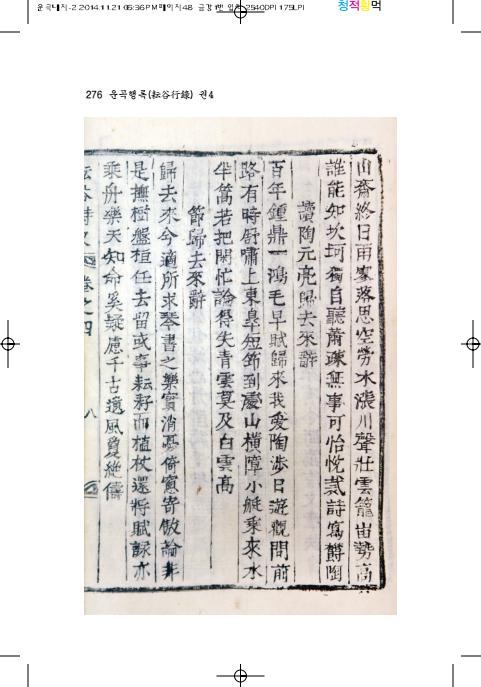 운곡내지-2 2014.11.21 05:36 PM 페이지48 2540DPI 175LPI
청적황먹
276 운곡행록(耘谷行錄) 권4
山齋終日雨寥落思空勞水漲川聲壯雲籠岀勢高
誰能知坎坷獨自聽蕭疎無事可怡悅裁詩寫欝陶
讀陶元亮歸去來辭
百年鍾鼎一鴻毛早賦歸來我愛陶涉日遊觀問前
路有時舒嘯上東皐短笻到處山橫障小艇乘來水
半篙若把閑忙論得失青雲莫及白雲高
節歸去來辭
歸去來兮適所求琴書之樂實消憂倚窓寄傲論非
是撫樹盤桓任去留或事耘耔而植杖還將賦詠亦
乘舟樂天知命奚疑慮千古遺風夐絶儔
耘谷詩史 卷之四 八